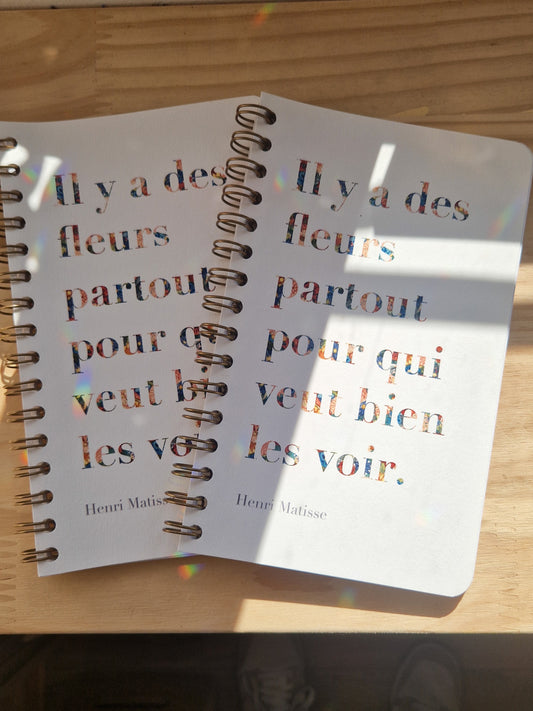 Il y a des
fleurs
partout
pour q
veut b
les vo
Henri Matiss
Il y a des
fleurs
partout
pour qui
veut bien
les voir.
Henri Matisse